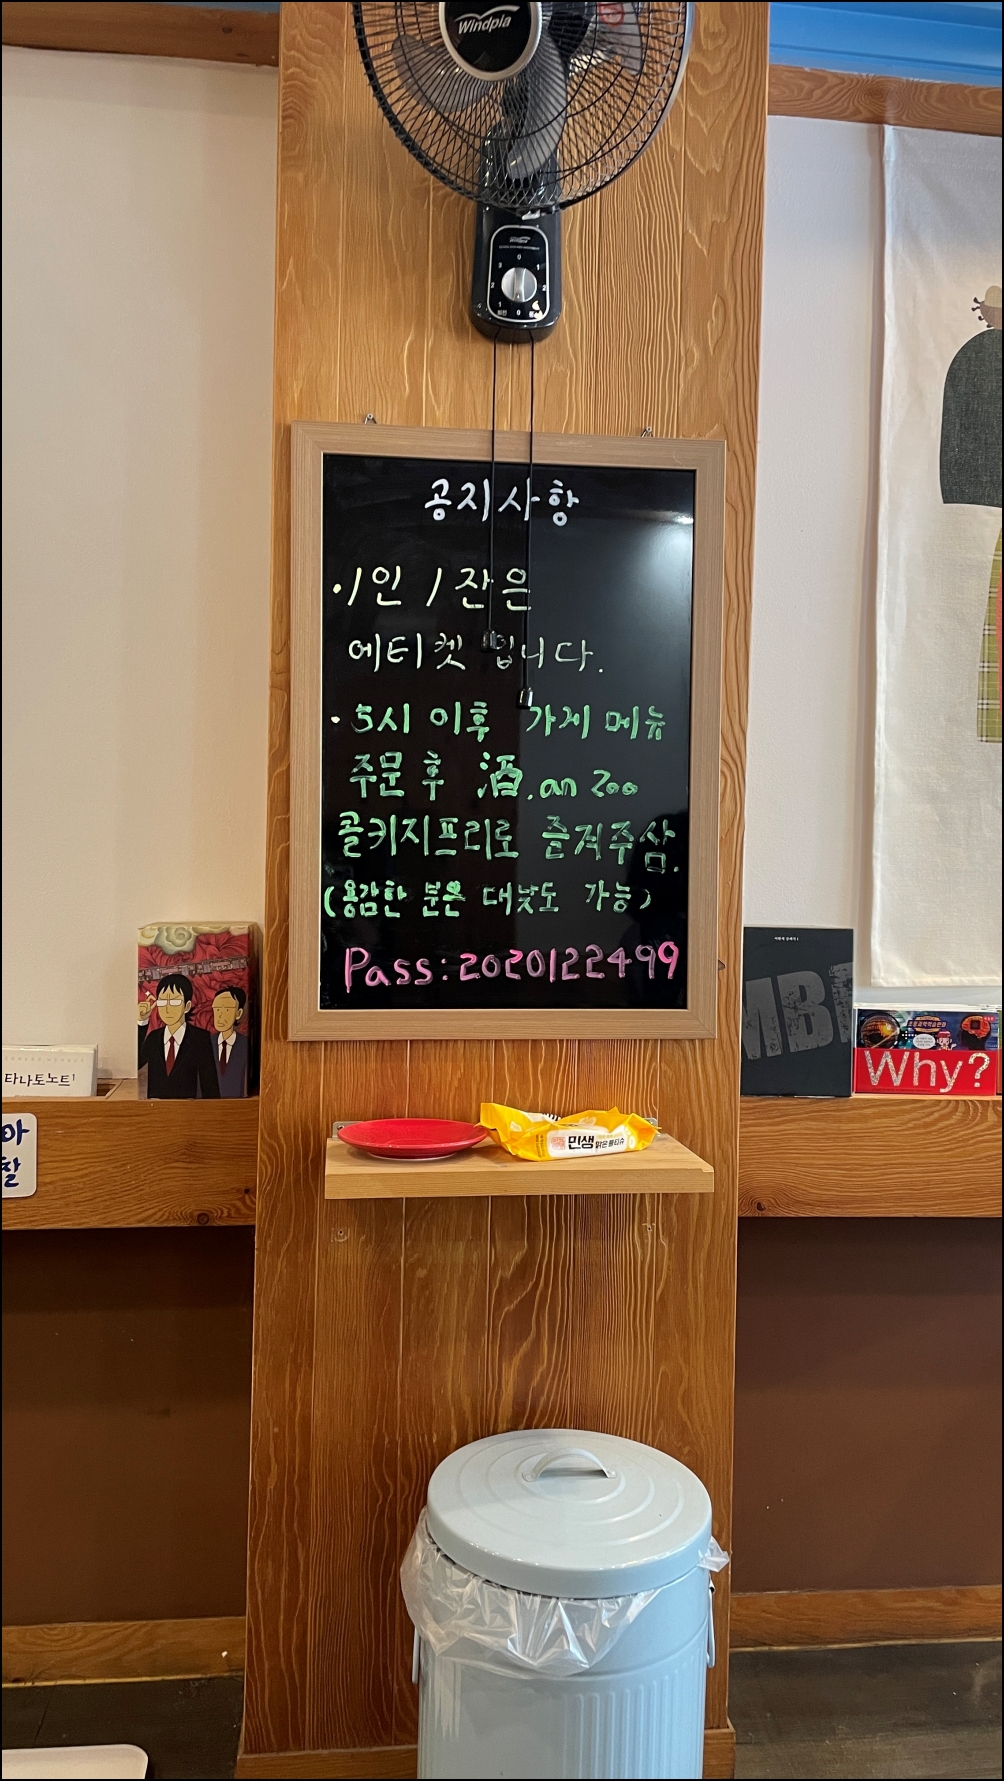 Windpla
공지사항
·1인 1잔은
에티켓 입니다.
·5시 이후 가게 메뉴
주문 후 酒.an Zoo
콜키지프리로 즐겨주삼.
(용감한 분은 대낮도 가능)
Pass:2020122499
타나토노트1
MBI
Why?
아
찰
민생
맑은물티슈